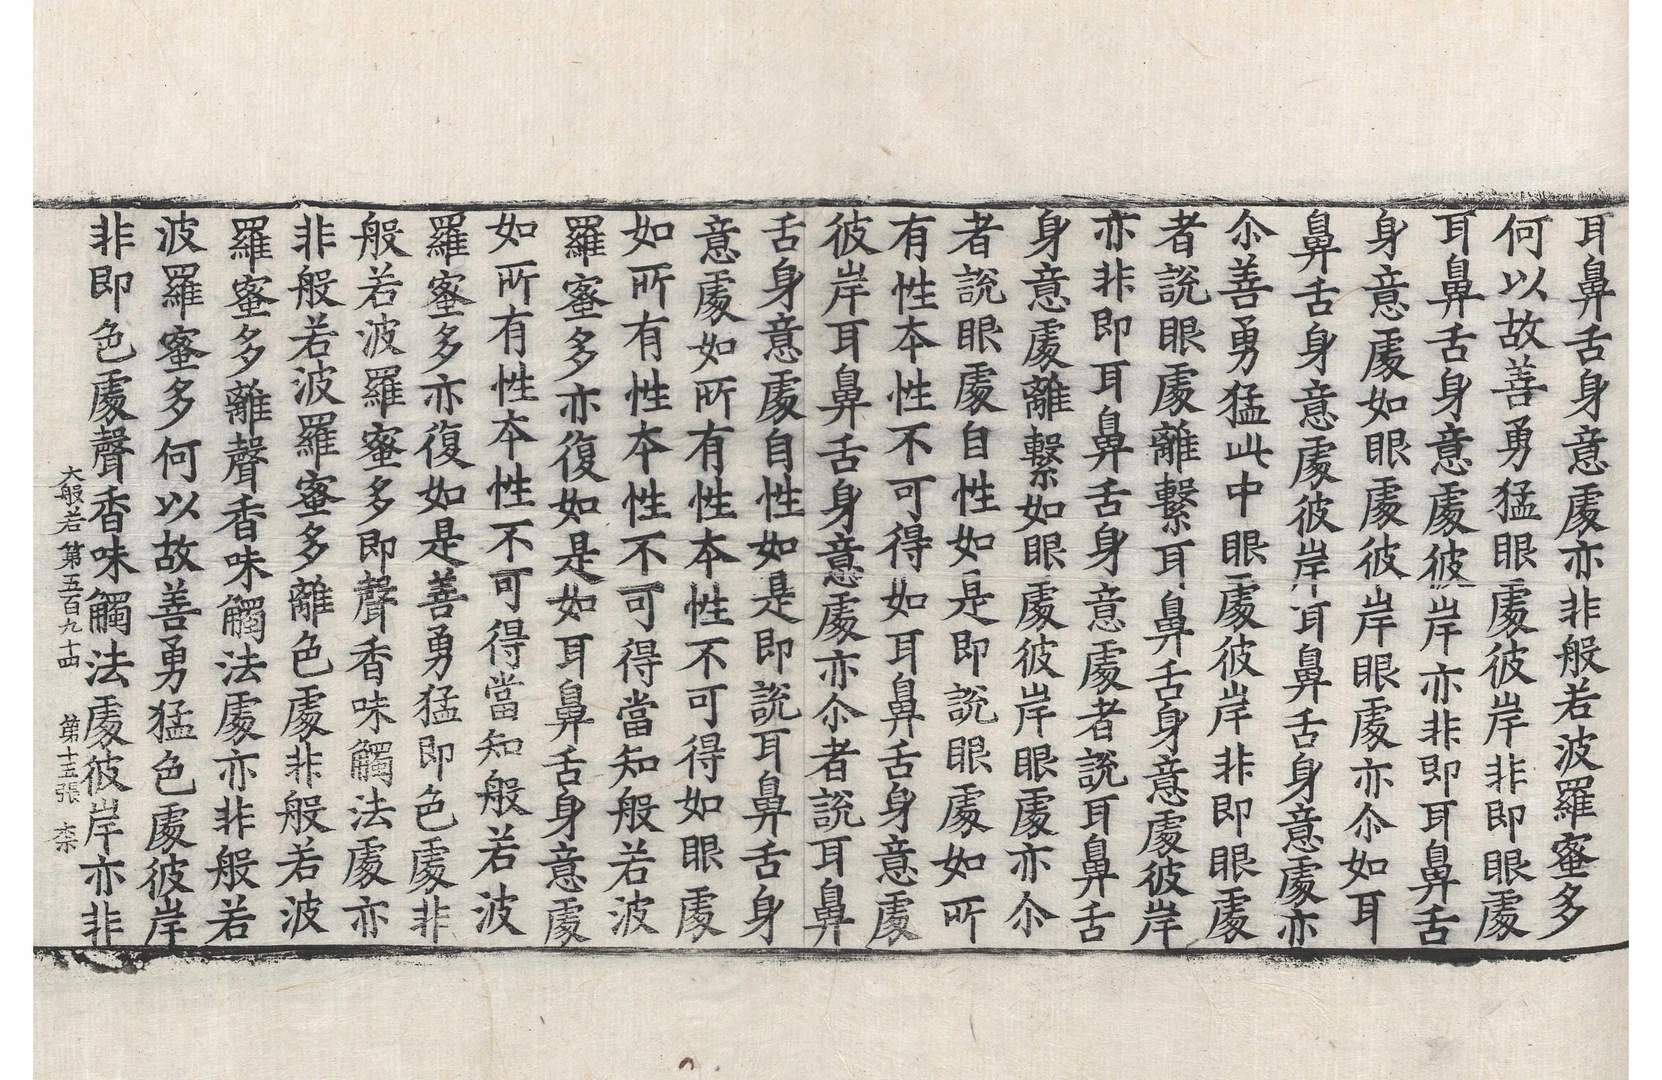 耳鼻舌身意處亦非般若波羅蜜多
何以故善勇猛眼處彼岸非即眼處
耳鼻舌身意處彼岸亦非即耳鼻舌
身意處如眼處彼岸眼處亦尒如耳
鼻舌身意處彼岸耳鼻舌身意處亦
尒善勇猛此中眼處彼岸非即眼處
者說眼處離繫耳鼻舌身意處彼岸
亦非即耳鼻舌身意處者說耳鼻舌
身意處離繫如眼處彼岸眼處亦尒
者說眼處自性如是即說眼處如所
有性本性不可得如耳鼻舌身意處
彼岸耳鼻舌身意處亦尒者說耳鼻
舌身意處自性如是即說耳鼻舌身
意處如所有性本性不可得如眼處
如所有性本性不可得當知般若波
羅蜜多亦復如是如耳鼻舌身意處
如所有性本性不可得當知般若波
羅蜜多亦復如是善勇猛即色處非
般若波羅蜜多即聲香味觸法處亦
非般若波羅蜜多離色處非般若波
羅蜜多離聲香味觸法處亦非般若
波羅蜜多何以故善勇猛色處彼岸
非即色處聲香味觸法處彼岸亦非
大般若第五百九十四 第十五張 柰